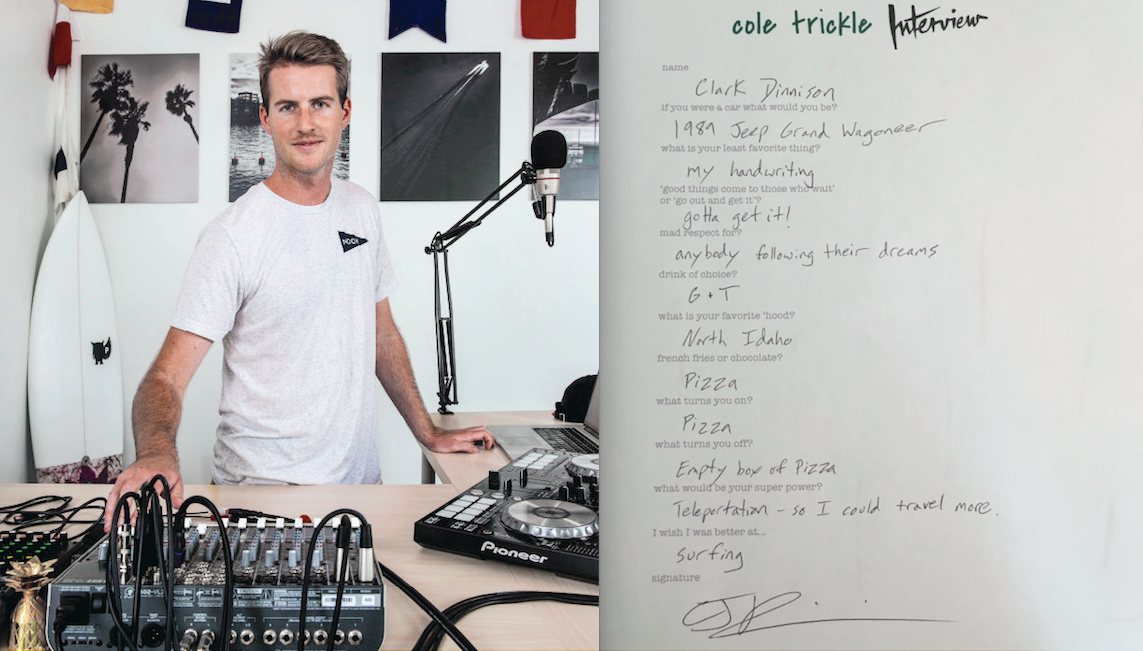 NOON
Pioneer
cole trickle Interview
name
Clark Dinnison
if you were a car what would you be?
1989 Jeep Grand Wagoneer
what is your least favorite thing?
my handwriting
'good things come to those who wait'
or 'go out and get it'?
gotta get it!
mad respect for?
anybody following their dreams
drink of choice?
G + T
what is your favorite 'hood?
North Idaho
french fries or chocolate?
Pizza
what turns you on?
Pizza
what turns you off?
Empty box of Pizza
what would be your super power?
Teleportation - so I could travel more.
I wish I was better at...
surfing
signature